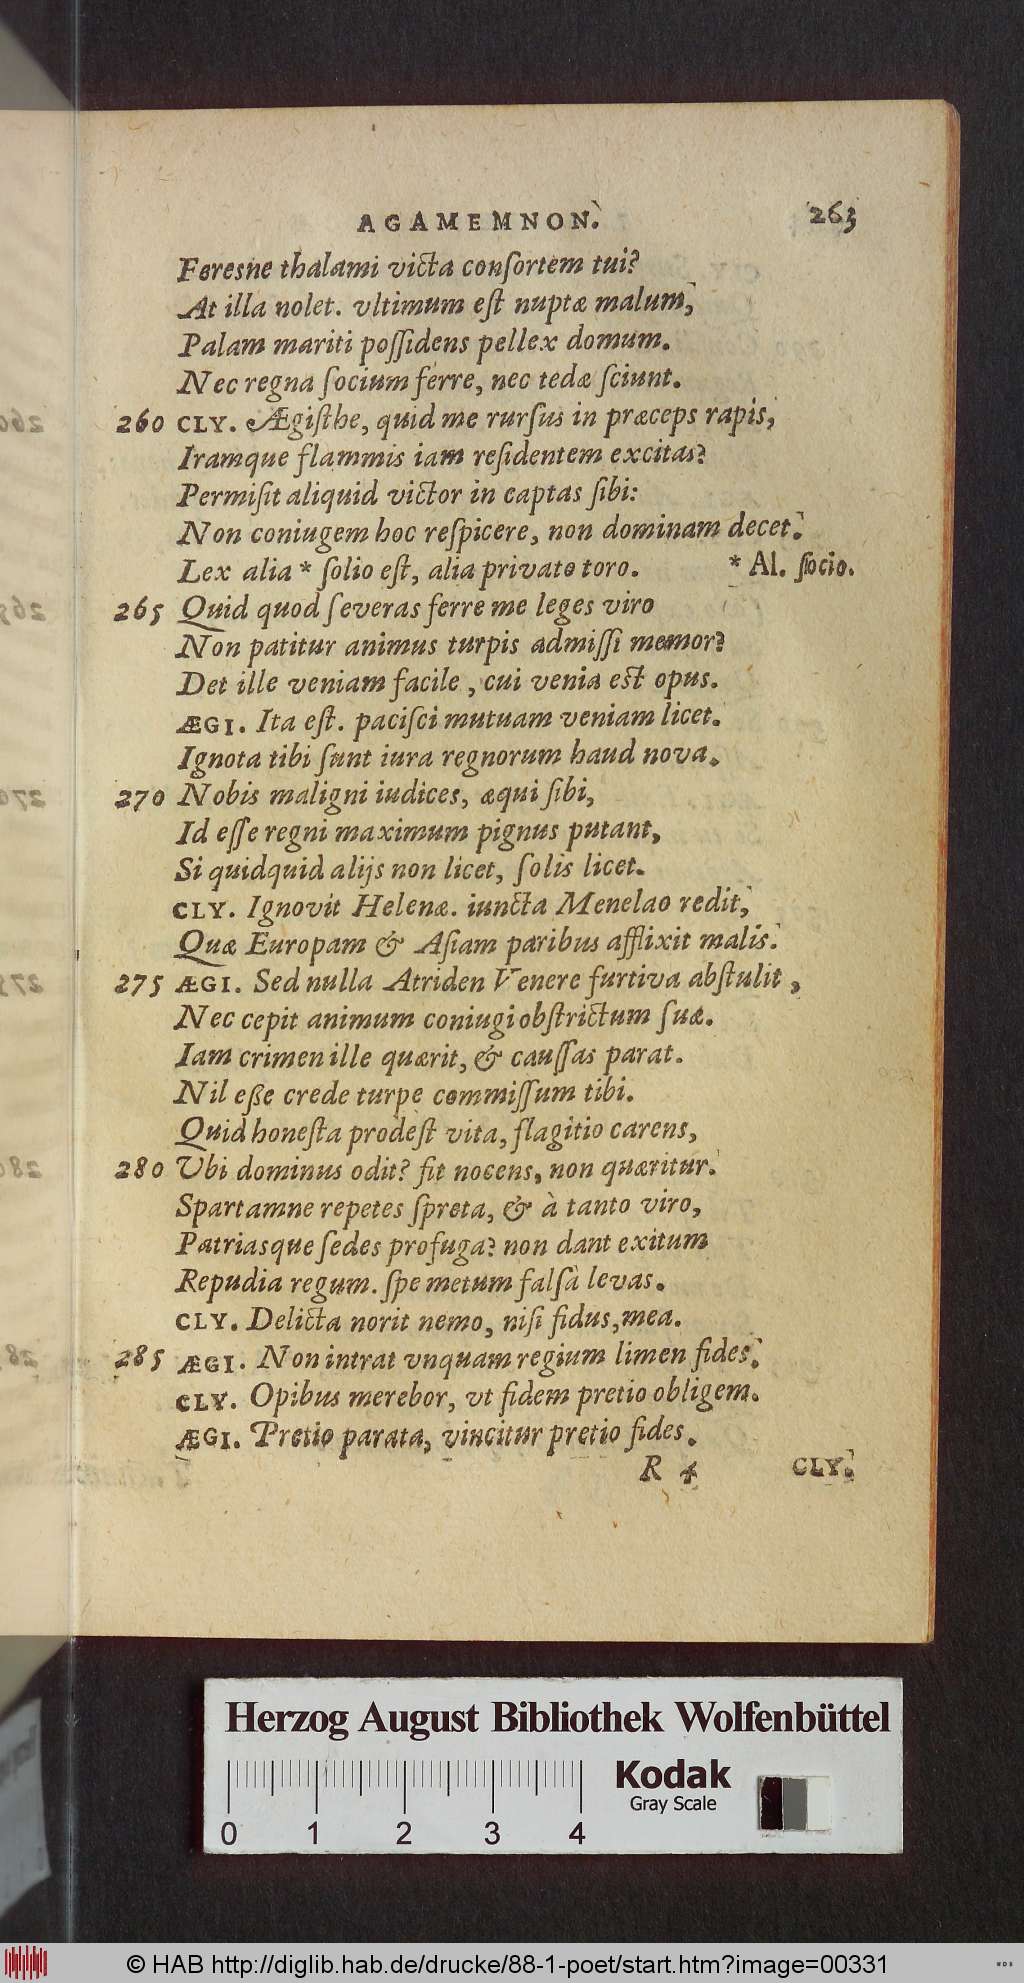 AGAMEMNON. 263
Feresne thalami victa conſortem tui?
At illa nolet. vltimum eſt nuptæ malum,
Palam mariti poſſidens pellex domum.
Nec regna ſocium ferre, nec tedæ ſciunt.
260 CLY. Ægiſthe, quid me rurſus in præceps rapis,
Iramque flammis iam reſidentem excitas?
Permiſit aliquid victor in captas ſibi:
Non coniugem hoc reſpicere, non dominam decet.
Lex alia * ſolio eſt, alia privato toro. * Al. ſocio.
265 Quid quod ſeveras ferre me leges viro
Non patitur animus turpis admiſſi memor?
Det ille veniam facile, cui venia est opus.
ÆGI. Ita eſt. paciſci mutuam veniam licet.
Ignota tibi ſunt iura regnorum haud nova.
270 Nobis maligni iudices, æqui ſibi,
Id eſſe regni maximum pignus putant,
Si quidquid alijs non licet, ſolis licet.
CLY. Ignovit Helenæ. iuncta Menelao redit,
Quæ Europam & Aſiam paribus afflixit malis.
275 ÆGI. Sed nulla Atriden Venere furtiva abſtulit,
Nec cepit animum coniugi obſtrictum ſuæ.
Iam crimen ille quærit, & cauſſas parat.
Nil eße crede turpe commiſſum tibi.
Quid honeſta prodeſt vita, flagitio carens,
280 Vbi dominus odit? fit nocens, non quæritur.
Spartamne repetes ſpreta, & à tanto viro,
Patriasque ſedes profuga? non dant exitum
Repudia regum. ſpe metum falſà levas.
CLY. Delicta norit nemo, niſi fidus, mea.
285 ÆGI. Non intrat vnquam regium limen fides.
CLY. Opibus merebor, vt fidem pretio obligem.
ÆGI. Pretio parata, vincitur pretio fides.
R 4 CLY.
Herzog August Bibliothek Wolfenbüttel
Kodak
Gray Scale
0 1 2 3 4
© HAB http://diglib.hab.de/drucke/88-1-poet/start.htm?image=00331